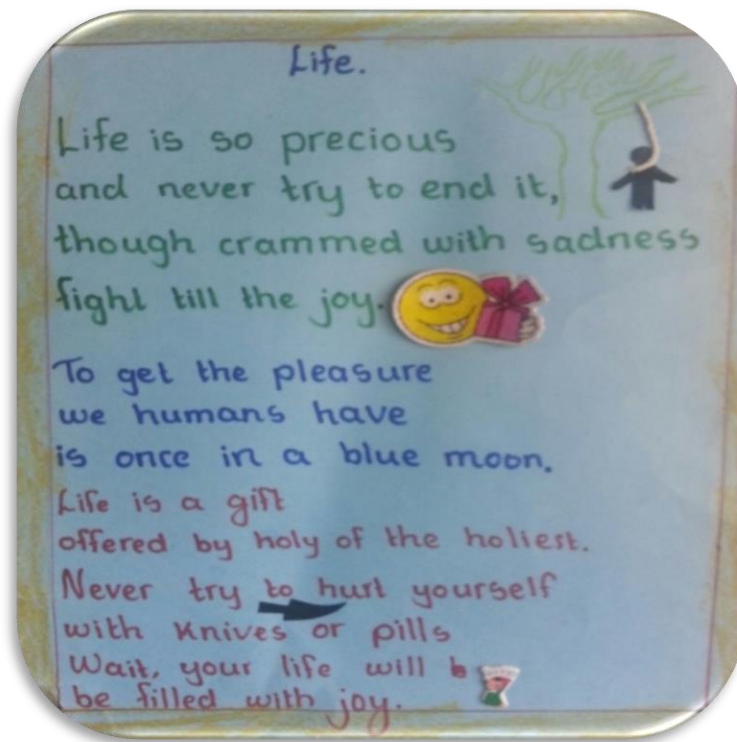 Life.
Life is so precious
and never try to end it,
though crammed with sadness
fight till the joy.
To get the pleasure
we humans have
is once in a blue moon.
Life is a gift
offered by holy of the holiest.
Never try to hurt yourself
with knives or pills
Wait, your life will b
be filled with joy.